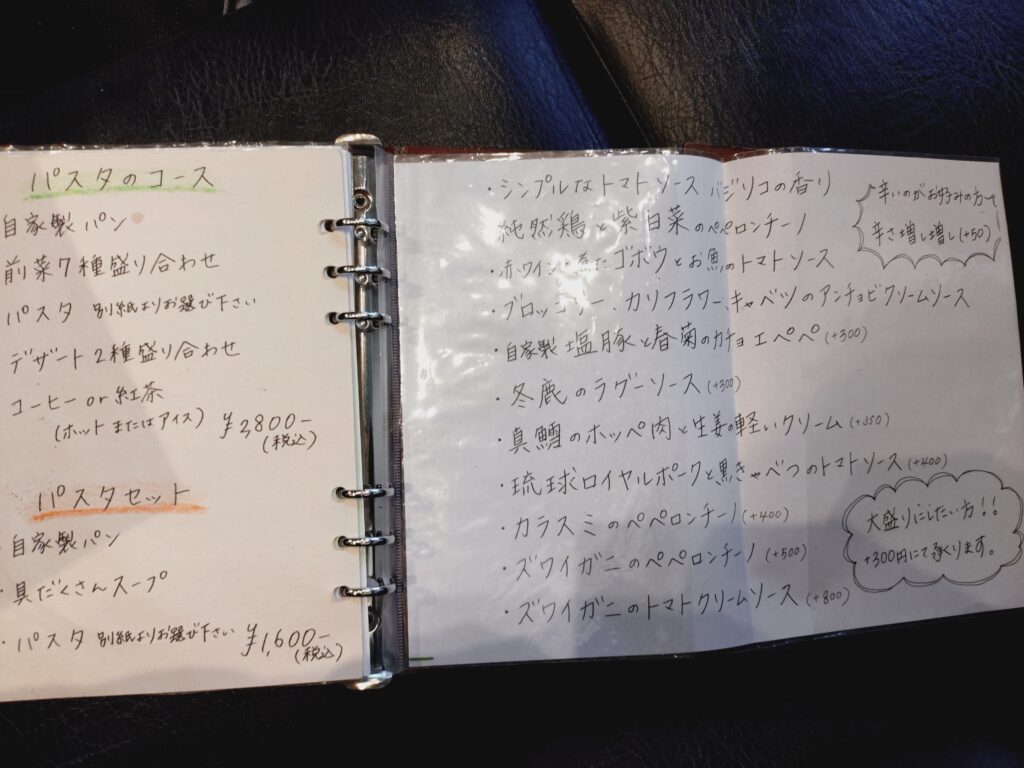 パスタのコース
自家製パン
前菜7種盛り合わせ
パスタ 別紙よりお選び下さい
デザート2種盛り合わせ
コーヒー or 紅茶
(ホットまたはアイス) ¥2,800-
(税込)
パスタセット
・自家製パン
・具だくさんスープ
・パスタ 別紙よりお選び下さい ¥1,600-
(税込)
・シンプルなトマトソース バジリコの香り
純然鶏と紫白菜のペペロンチーノ
・赤ワインで煮たゴボウとお魚のトマトソース
・ブロッコリー、カリフラワー、キャベツのアンチョビクリームソース
・自家製塩豚と春菊のカチョエペペ(+300)
・冬鹿のラグーソース(+300)
・真鱈のホッペ肉と生姜の軽いクリーム(+350)
・琉球ロイヤルポークと黒きゃべつのトマトソース(+400)
・カラスミのペペロンチーノ(+400)
・ズワイガニのペペロンチーノ(+500)
・ズワイガニのトマトクリームソース(+800)
辛いのがお好みの方へ
辛さ増し増し(+50)
大盛りにしたい方!!
+300円にて承ります。